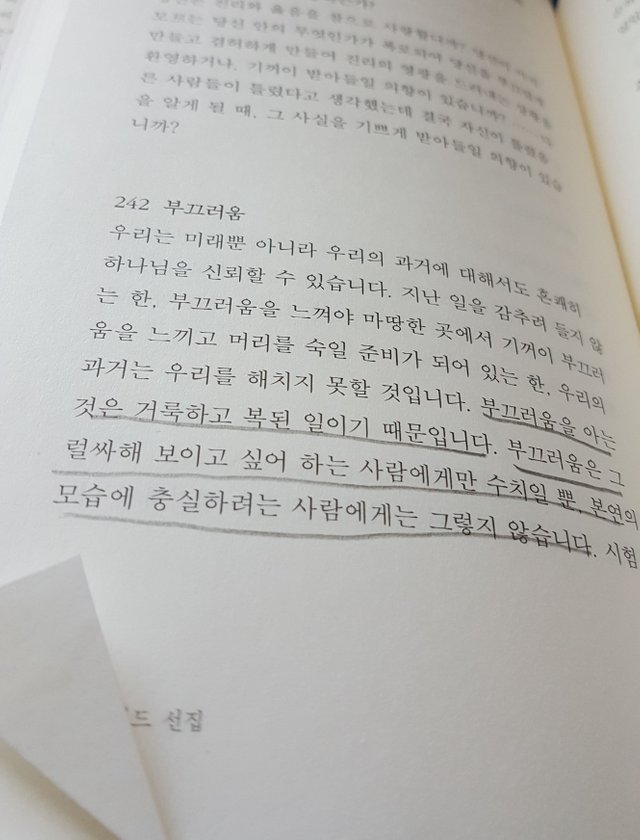 모르는 당신 안의 무엇인가가 폭로되어 당신을
만들고 겸허하게 만들어 진리의 영광을 드러내는
환영하거나, 기꺼이 받아들일 의향이 있습니까? ……
른 사람들이 틀렸다고 생각했는데 결국 자신이 틀렸음
을 알게 될 때, 그 사실을 기쁘게 받아들일 의향이 있습
니까?
242 부끄러움
우리는 미래뿐 아니라 우리의 과거에 대해서도 흔쾌히
하나님을 신뢰할 수 있습니다. 지난 일을 감추려 들지 않
는 한, 부끄러움을 느껴야 마땅한 곳에서 기꺼이 부끄러
움을 느끼고 머리를 숙일 준비가 되어 있는 한, 우리의
과거는 우리를 해치지 못할 것입니다. 부끄러움을 아는
것은 거룩하고 복된 일이기 때문입니다. 부끄러움은 그
럴싸해 보이고 싶어 하는 사람에게만 수치일 뿐, 본연의
모습에 충실하려는 사람에게는 그렇지 않습니다. 시험
드 선집